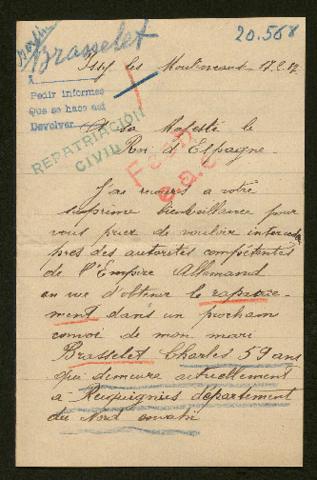 Berlin
Brasselet
20.568
Issy les Moulineaux 17.2.17
Pedir informes
Que se hace así
Devolver
A sa Majesté le
Roi d'Espagne
REPATRIACION
CIVIL
J'ai recours à votre
suprême bienveillance pour
vous prier de vouloir intercéder
près des autorités compétentes
de l'Empire Allemand
en vue d'obtenir le rapatrie-
ment dans un prochain
convoi de mon mari
Brasselet Charles 59 ans
qui demeure actuellement
à Requignies département
du Nord envahi